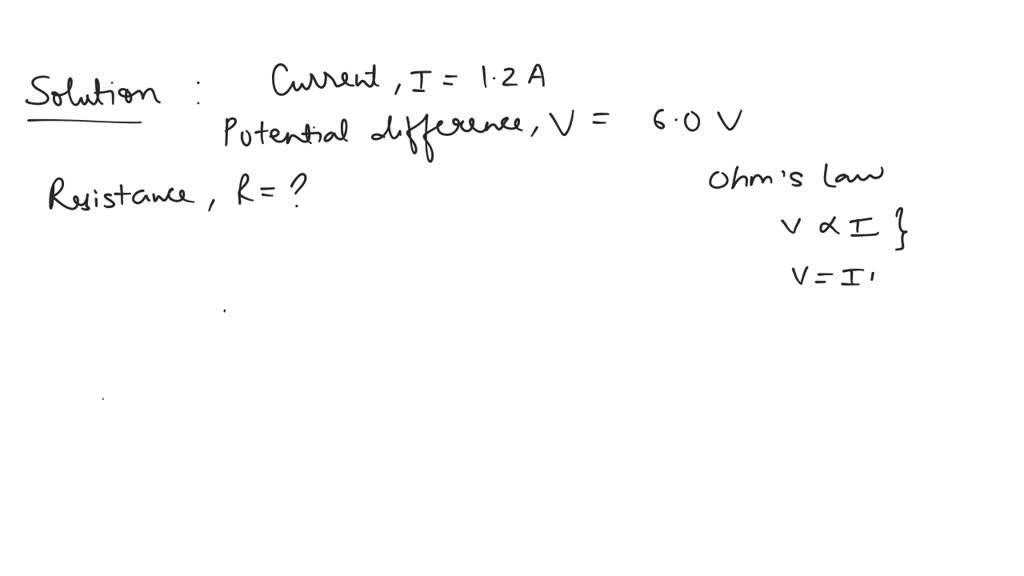 Solution : Current, I = 1.2 A
Potential difference, V = 6.0 V
Resistance, R = ?
Ohm's Law
V ∝ I }
V = I